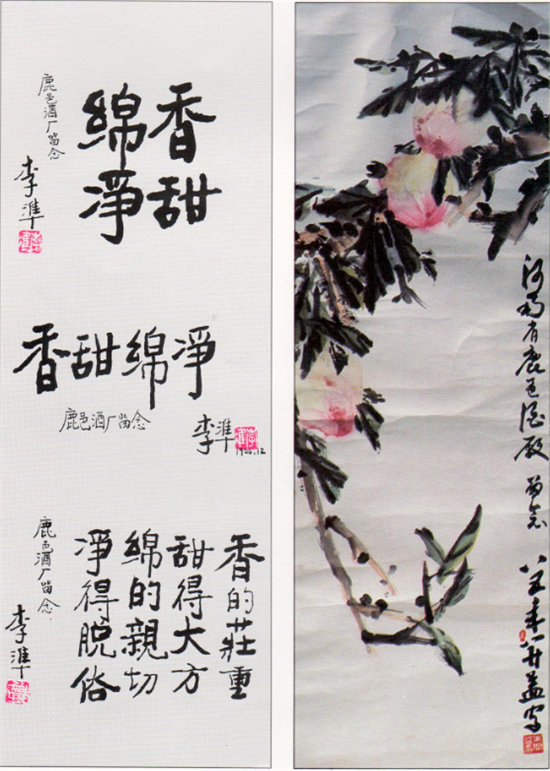 香甜
綿淨
鹿邑酒厂留念
李準
香甜綿淨
鹿邑酒厂留念
李準
香的莊重
甜得大方
綿的親切
淨得脫俗
鹿邑酒厂留念
李準
河南省鹿邑酒廠 留念
八五年